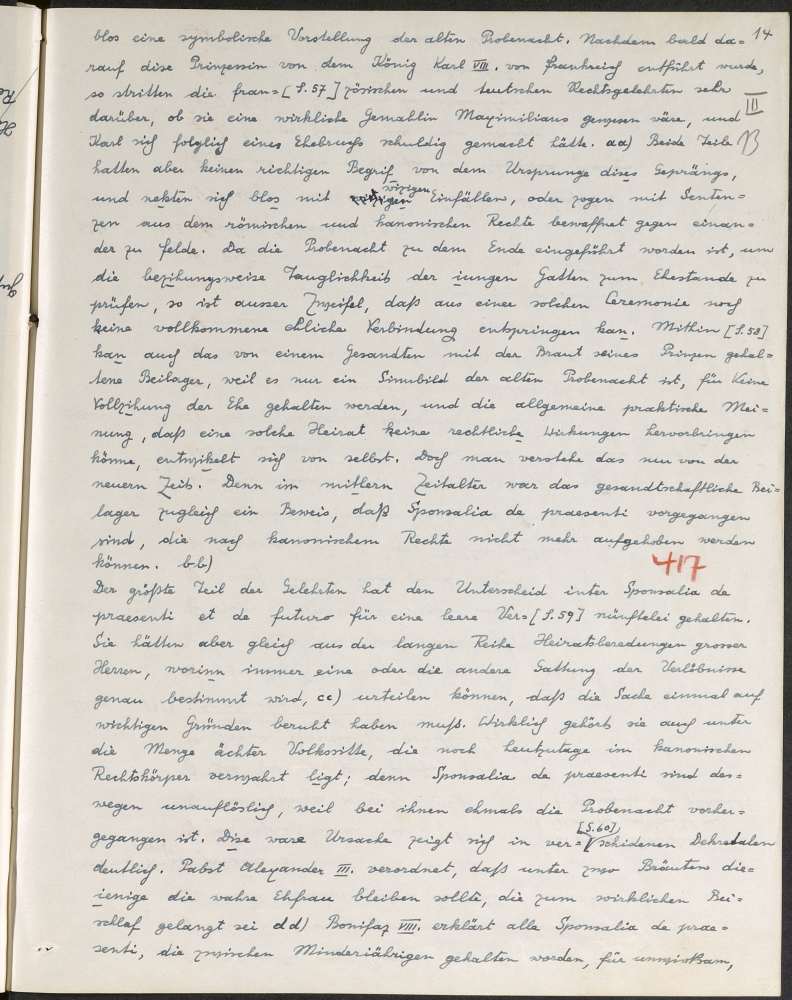 14
blos eine symbolische Vorstellung der alten Probenacht. Nachdem bald da=
rauf dise Prinzessin von dem König Karl VIII. von Frankreich entführt wurde,
so stritten die fran=[S.57]zösischen und teutschen Rechtsgelehrten sehr
III
darüber, ob sie eine wirkliche Gemahlin Maximilians gewesen wäre, und
Karl sich folglich eines Ehebruchs schuldig gemacht hätte. aa) Beide Teile
B
hatten aber keinen richtigen Begrif von dem Ursprunge dises Geprängs,
und nekten sich blos mit wizigen Einfällen, oder zogen mit Senten=
zen aus dem römischen und kanonischen Rechte bewaffnet gegen einan=
der zu felde. Da die Probenacht zu dem Ende eingeführt worden ist, um
die bezihungsweise Tauglichkeit der iungen Gatten zum Ehestande zu
prüfen, so ist ausser Zweifel, daß aus einer solchen Ceremonie noch
keine vollkommene ehliche Verbindung entspringen kan. Mithin [S.58]
kan auch das von einem Gesandten mit der Braut seines Prinzen gehal=
tene Beilager, weil es nur ein Sinnbild der alten Probenacht ist, für keine
Vollzihung der Ehe gehalten werden, und die allgemeine praktische Mei=
nung, daß eine solche Heirat keine rechtliche Wirkungen hervorbringen
könne, entwikelt sich von selbst. Doch man verstehe das nur von der
neuern Zeit. Denn im mitlern Zeitalter war das gesandtschaftliche Bei=
lager zugleich ein Beweis, daß Sponsalia de praesenti vorgegangen
sind, die nach kanonischem Rechte nicht mehr aufgehoben werden
können. bb)
417
Der größte Teil der Gelehrten hat den Unterscheid inter Sponsalia de
praesenti et de futuro für eine leere Ver=[S.59] nünftelei gehalten.
Sie hätten aber gleich aus der langen Reihe Heiratsberedungen grosser
Herren, worinn immer eine oder die andere Gattung der Verlöbnisse
genau bestimmt wird, cc) urteilen können, daß die Sache einmal auf
wichtigen Gründen beruht haben muß. Wirklich gehört sie auch unter
die Menge ächter Volkssitte, die noch heutzutage im kanonischen
Rechtskörper verwahrt ligt; denn Sponsalia de praesenti sind des=
wegen unauflöslich, weil bei ihnen ehmals die Probenacht vorher=
gegangen ist. Dise ware Ursache zeigt sich in ver=[S.60]schidenen Dekretalen
deutlich. Pabst Alexander III. verordnet, daß unter zwo Bräuten die=
ienige die wahre Ehfrau bleiben sollte, die zum wirklichen Bei=
schlaf gelangt sei dd) Bonifaz VIII. erklärt alle Sponsalia de prae=
senti, die zwischen Minderjährigen gehalten worden, für unwirksam,